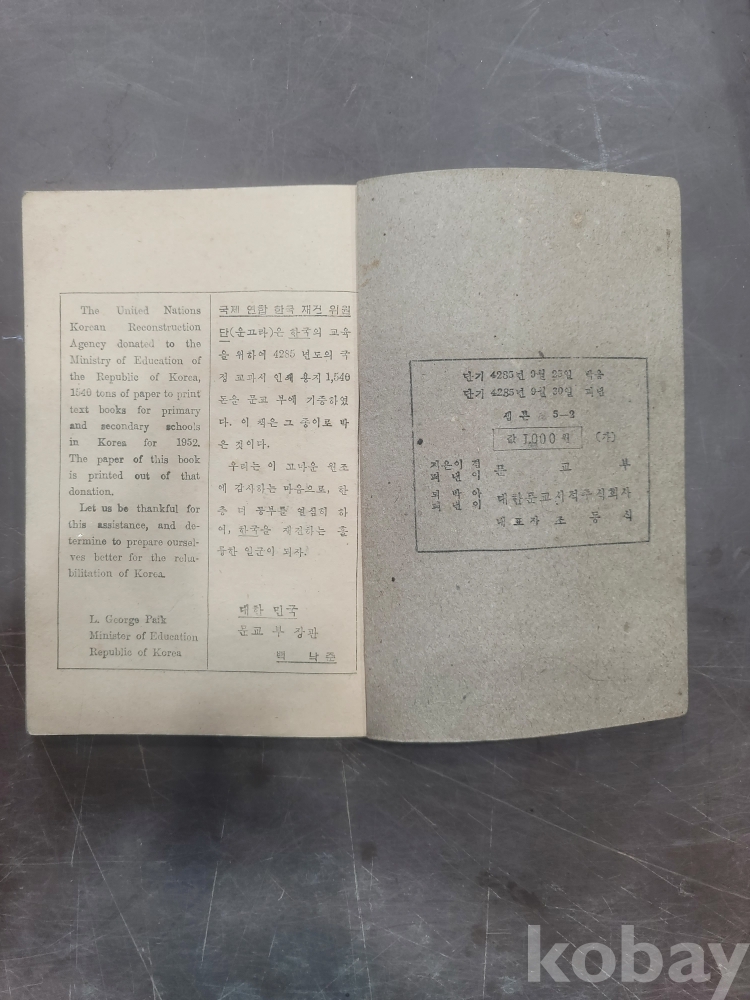 The United Nations
Korean Reconstruction
Agency donated to the
Ministry of Education of
the Republic of Korea,
1540 tons of paper to print
text books for primary
and secondary schools
in Korea for 1952.
The paper of this book
is printed out of that
donation.
Let us be thankful for
this assistance, and de-
termine to prepare oursel-
ves better for the reha-
bilitation of Korea.
L. George Paik
Minister of Education
Republic of Korea
국제 연합 한국 재건 위원
단(운끄라)은 한국의 교육
을 위하여 4285 년도의 국
정 교과서 인쇄 용지 1,540
톤을 문교 부에 기증하였
다. 이 책은 그 종이로 박
은 것이다.
우리는 이 고마운 원조
에 감사하는 마음으로, 한
층 더 공부를 열심히 하
여, 한국을 재건하는 훌
륭한 일군이 되자.
대한 민국
문교 부 장관
백 낙 준
단기 4285년 9월 일 박음
단기 4285년 9월 30일 펴냄
셈본 5-2
값 1,000 원 (가)
지은이 겸
펴낸이 문 교 부
박아
펴낸이 대한문교서적주식회사
대표자 조
kobay